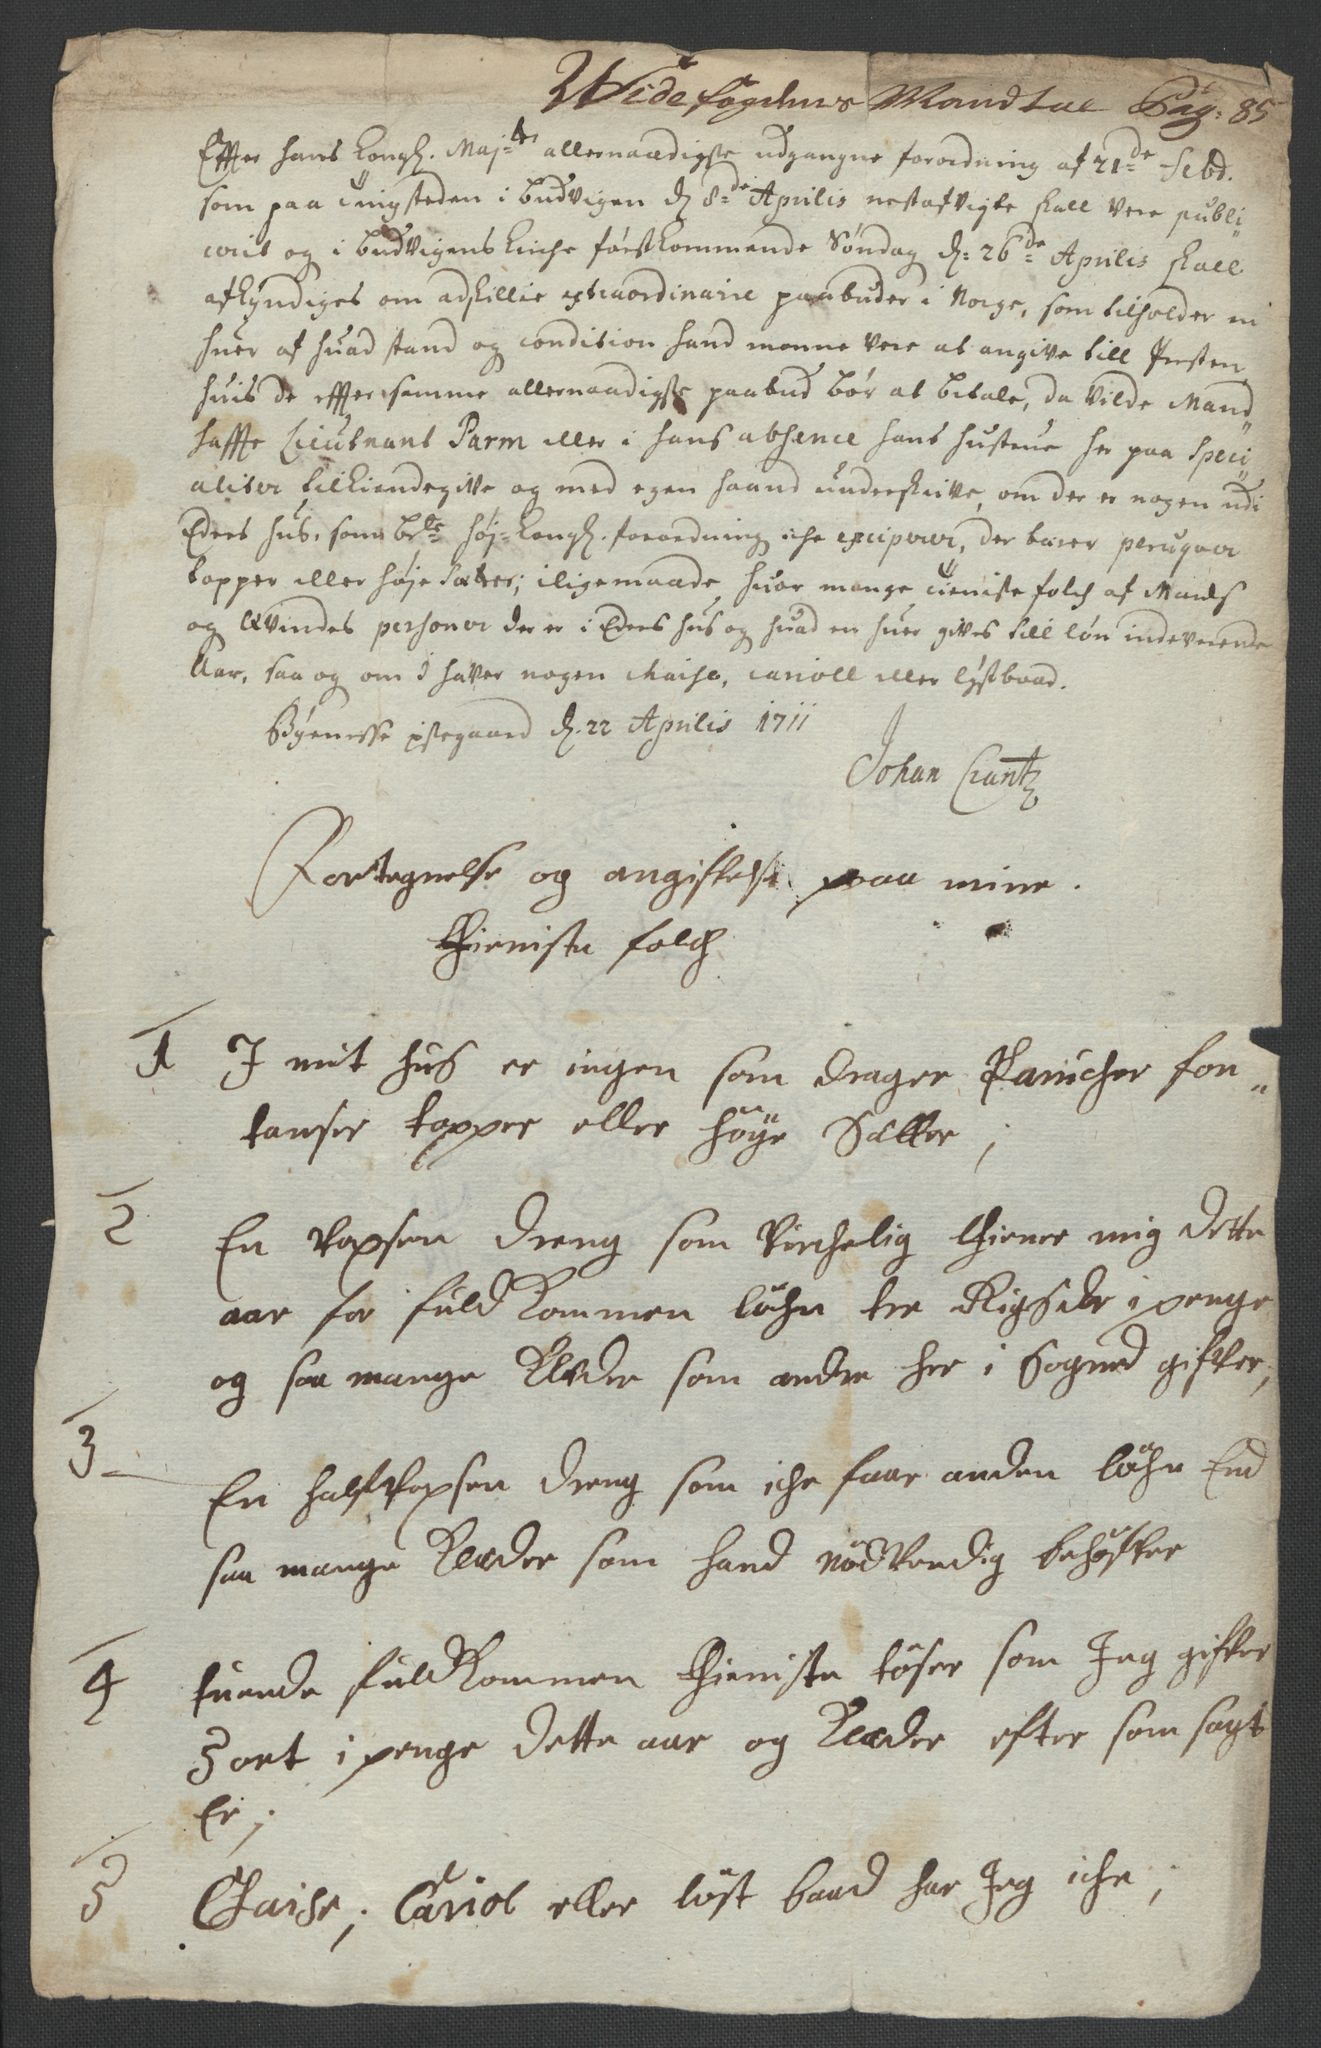 Wide fogdens Mandtal Pag: 85
Effter hans Kongl. Maj:ts allernaadigste udgangne forordning af 21de Feb.
som paa tingsteden i Budvigen d. 8de Aprilis nestafvigte skall vere publi„
cerit og i Budvigens kirche førstkommende Søndag d: 26de Aprilis skall
afkyndiges om adskillie extraordinaire paabuder i Norge, som tilholder en
huer af huad stand og condition hand monne vere at angive till Presten
huis de effter samme allernaadigste paabud bør at betale, da vilde Mand„
haffte Lieutnant Parm eller i hans absence hans hustrue her paa speci„
aliter tilkiendegive og med egen haand underskrive, om der er nogen udi
Eders hus, som bete høj-Kongl. forordning iche exciperer, der bærer peruqver
topper eller høje Sætter; iligemaade, huor mange tieniste folch af Mands
og qvindes personer der er i Eders hus og huad en huer gives till løn indeverende
Aar, saa og om I haver nogen chaise, carioll eller lystbaad.
Bøgenesse pstegaard d. 22 Aprilis 1711
Johan Crantz
Fortegnelse og angiffvelse paa mine
thieniste folch
1 I mit hus er ingen som drager Parucher fon„
tanser topper eller høye Sætter;
2 En voxsen dreng som virchelig thiener mig dette
aar for fuldkommen løhn tre Rigsdr i penge
og saa mange Klæder som andre her i Sogned gifver,
3 En halfvoxsen dreng som iche faar anden løhn End
saa mange Klæder som hand nødvendig behøfver
4 tuende fuldkommen thieniste tøser som Jeg gifver
5 ort i penge dette aar og Klæder efter som sagt
Er;
5 Chaise; Cariol eller løst baad har Jeg iche;